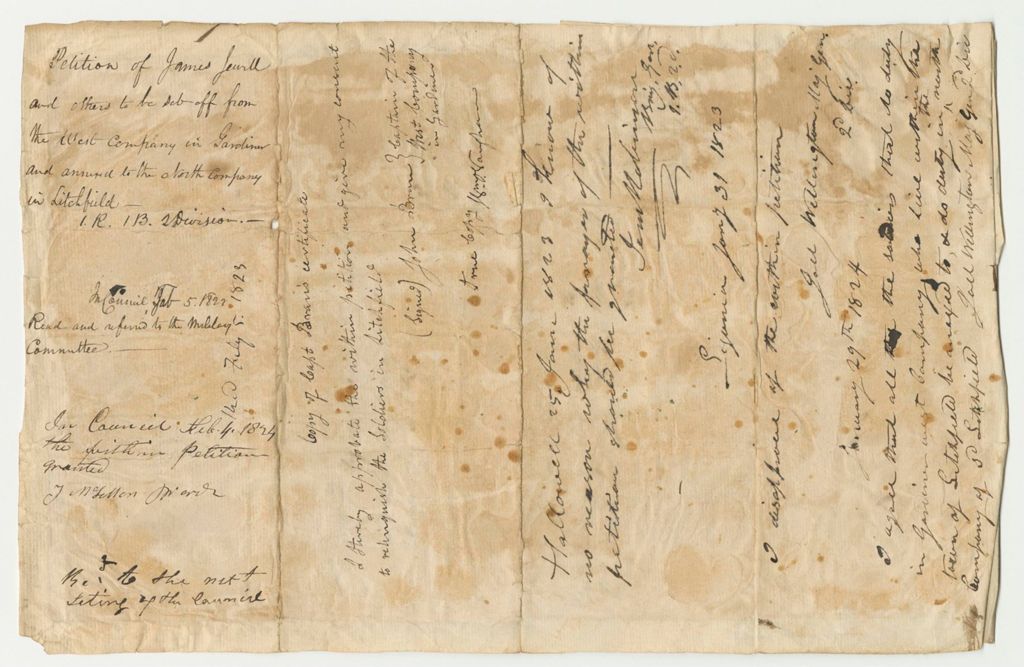 Petition of James Jewell
and others to be set off from
the West Company in Gardiner
and annexed to the North Company
in Litchfield —
1. R. 1 B. 2 Division. —
In Council, Feb 5. 1823
Read and referred to the Military
Committee. —
filed Feby 1823
In Council Feb. 4. 1824
the within Petition
granted
to the next
of the Council
Copy of Capt Bran's certificate
I hereby approbate the within petition and give my consent
to relinquish the Soldiers in Litchfield
(Signed) John Brann } Captain of the
West Company
in Gardiner
True Copy
Hallowell 25 June 1823 I know of
no reason why the prayer of the within
petition should not be granted
Jesse Robinson
Brig Gen
1. B. 2 D.
Jany 31 1823
I disapprove of the within petition
Joel Wellington Maj Gen
2 Div
January 29th 1824
I agree that all the soldiers that do duty
in Gardiner west Company who live within the
town of Litchfield be annexed to & do duty in the north
Company of Litchfield Joel Wellington Maj Genl 2 Div